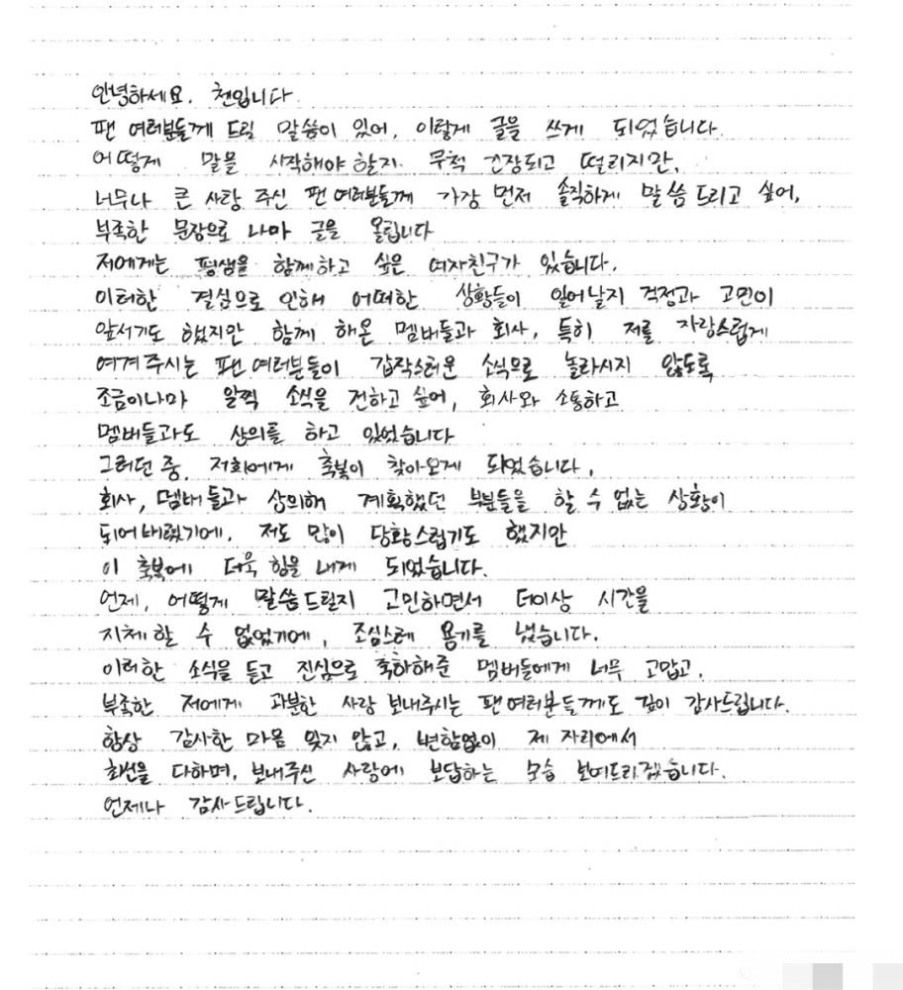 안녕하세요. 첸입니다.
팬 여러분들께 드릴 말씀이 있어, 이렇게 글을 쓰게 되었습니다.
어떻게 말을 시작해야 할지 무척 긴장되고 떨리지만,
너무나 큰 사랑 주신 팬 여러분들께 가장 먼저 솔직하게 말씀드리고 싶어,
부족한 문장으로 나마 글을 올립니다
저에게는 평생을 함께하고 싶은 여자친구가 있습니다.
이러한 결심으로 인해 어떠한 상황들이 일어날지 걱정과 고민이
앞서기도 했지만 함께 해온 멤버들과 회사, 특히 저를 자랑스럽게
여겨주시는 팬 여러분들이 갑작스러운 소식으로 놀라시지 않도록
조금이나마 일찍 소식을 전하고 싶어, 회사와 소통하고
멤버들과도 상의를 하고 있었습니다
그러던 중, 저희에게 축복이 찾아오게 되었습니다.
회사, 멤버들과 상의해 계획했던 부분들을 할 수 없는 상황이
되어버렸기에. 저도 많이 당황스럽기도 했지만
이 축복에 더욱 힘을 내게 되었습니다.
언제, 어떻게 말씀드릴지 고민하면서 더이상 시간을
지체할 수 없었기에, 조심스레 용기를 냈습니다.
이러한 소식을 듣고 진심으로 축하해준 멤버들에게 너무 고맙고,
부족한 저에게 과분한 사랑 보내주시는 팬여러분들께도 깊이 감사드립니다.
항상 감사한 마음 잊지 않고, 변함없이 제 자리에서
최선을 다하며, 보내주신 사랑에 보답하는 모습 보여드리겠습니다.
언제나 감사드립니다.